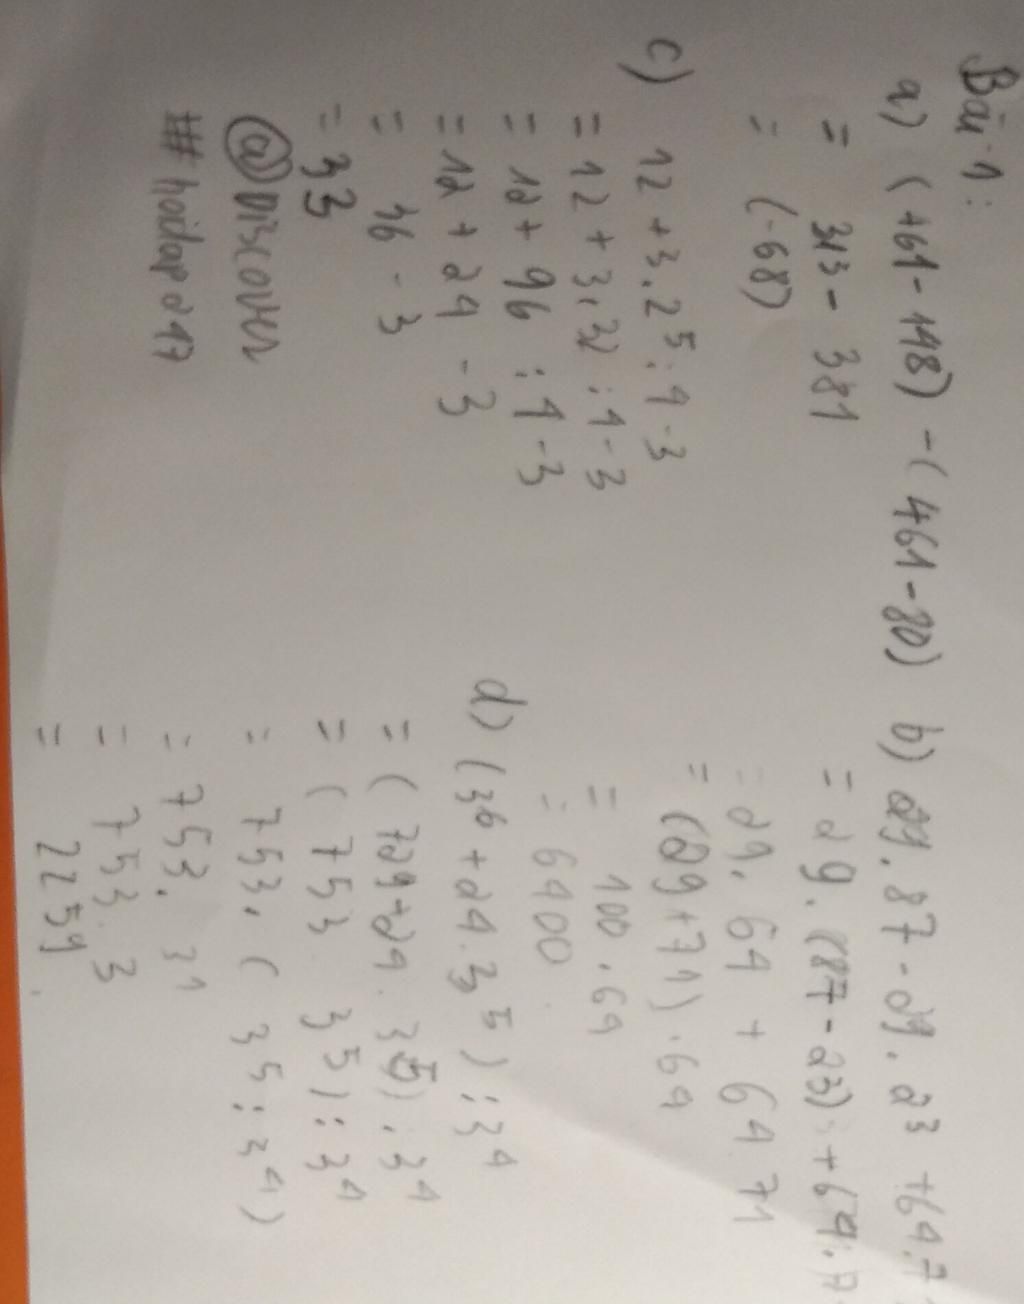 Bài 1:
a) (+61-148) - (461-80)
= 313 - 381
= (-68)
b) 29.87-29.23+64.7
= 29.(87-23)+64.7
= 29.64 + 64 71
= (29+71).64
= 100.64
= 6400
c) 12+3.2⁵:4-3
= 12+3.32:4-3
= 12+96:4-3
= 12+24-3
= 36-3
= 33
@Discover
#hoidap247
d) (3⁶+24.3⁵):3⁴
= (729+24.3⁵):3⁴
= (753 3⁵):3⁴
= 753.(3⁵:3⁴)
= 753.3¹
= 753.3
= 2259